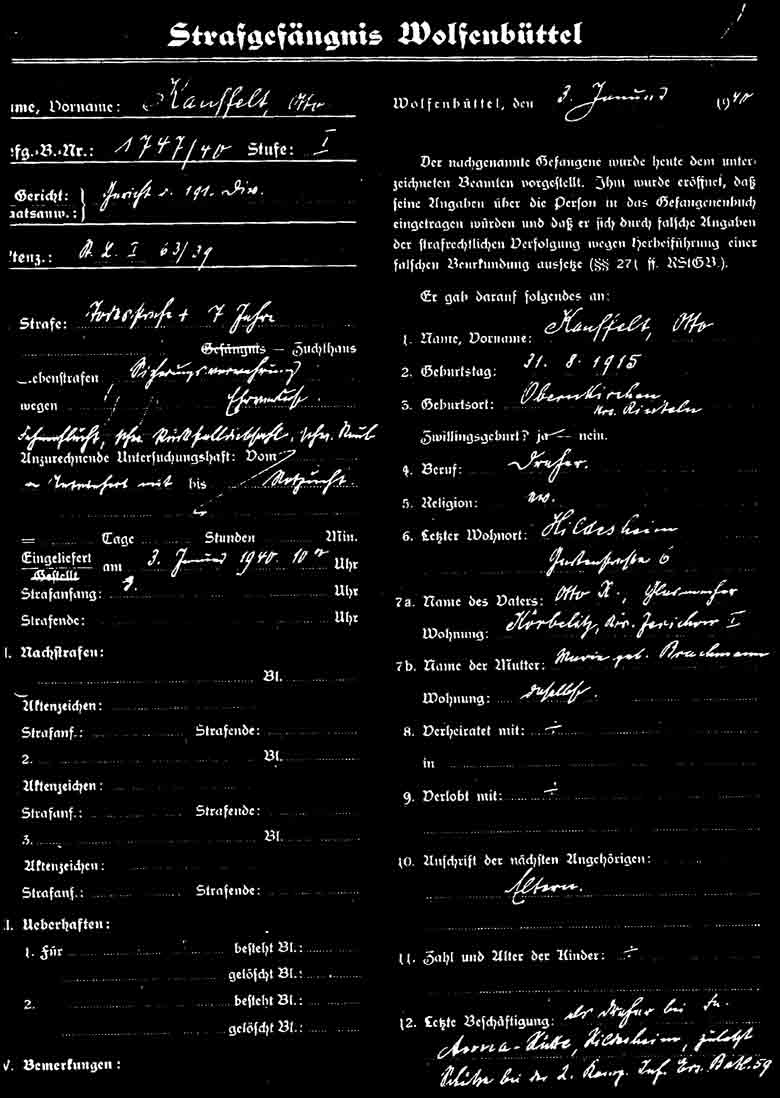 Strafgefängnis Wolfenbüttel
me, Vorname: Kauffelt, Otto
fg.-B.-Nr.: 1747/40 Stufe: I
Gericht: Gericht d. 191. Div.
aatsanw.:
tenz.: St. L. I 63/39
Strafe: Todesstrafe + 7 Jahre
Gefängnis — Zuchthaus
ebenstrafen Sicherungsverwahrung
wegen Ehrverlust
Fahnenflucht, schw. Rückfalldiebstahl, schw. Raub
Anzurechnende Untersuchungshaft: Vom
bis Notzucht.
Tage Stunden Min.
Eingeliefert am 3. Januar 1940. 10 Uhr
Gestellt
Strafanfang: 3. Uhr
Strafende: Uhr
I. Nachstrafen:
Bl.
Aktenzeichen:
Strafanf.: Strafende:
2. Bl.
Aktenzeichen:
Strafanf.: Strafende:
3. Bl.
Aktenzeichen:
Strafanf.: Strafende:
I. Ueberhaften:
1. Für besteht Bl.:
gelöscht Bl.:
2. besteht Bl.:
gelöscht Bl.:
V. Bemerkungen:
Wolfenbüttel, den 3. Januar 1940
Der nachgenannte Gefangene wurde heute dem unter-
zeichneten Beamten vorgestellt. Ihm wurde eröffnet, daß
seine Angaben über die Person in das Gefangenenbuch
eingetragen würden und daß er sich durch falsche Angaben
der strafrechtlichen Verfolgung wegen Herbeiführung einer
falschen Beurkundung aussetze (§§ 271 ff. RStGB.).
Er gab darauf folgendes an:
1. Name, Vorname: Kauffelt, Otto
2. Geburtstag: 31. 8. 1915
3. Geburtsort: Obernkirchen
Krs. Rinteln
Zwillingsgeburt? ja — nein.
4. Beruf: Dreher.
5. Religion: ev.
6. Letzter Wohnort: Hildesheim
6
7a. Name des Vaters: Otto K., Glasmacher
Wohnung: Körbelitz, Krs. Jerichow I
7b. Name der Mutter: Marie geb. Brachmann
Wohnung: daselbst.
8. Verheiratet mit: ÷
in
9. Verlobt mit: ÷
10. Anschrift der nächsten Angehörigen:
Eltern.
11. Zahl und Alter der Kinder: ÷
12. Letzte Beschäftigung: als Dreher bei Fa.
Hildesheim, zuletzt
Schütze bei der 2. Komp. Inf. Ers. Batl. 59